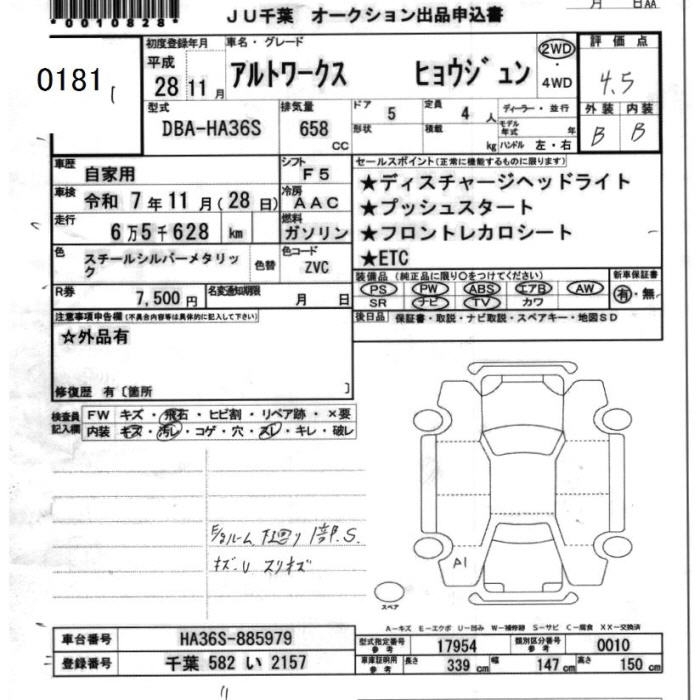 *0010828*
JU千葉 オークション出品申込書
月 日AA
0181
初度登録年月
平成
28 11月
車名・グレード
アルトワークス ヒョウジュン
2WD
・
4WD
評価点
4.5
外装 内装
B B
型式
DBA-HA36S
排気量
658
CC
ドア
5
形状
定員
4 人
積載
kg
ディーラー・並行
モデル年式 年
ハンドル 左・右
車歴
自家用
シフト
F5
車検
令和 7年 11月(28日)
冷房
AAC
走行
6万5千628 km
燃料
ガソリン
色
スチールシルバーメタリック
色替
色コード
ZVC
R券
7,500円
名変通知期限
月 日
セールスポイント(正常に機能するものに限ります)
★ディスチャージヘッドライト
★プッシュスタート
★フロントレカロシート
★ETC
装備品(純正品に限り○をつけてください)
PS PW ABS エアB AW
SR ナビ TV カワ
新車保証書
有・無
後日品 保証書・取説・ナビ取説・スペアキー・地図SD
注意事項申告欄(不具合内容等は具体的に記入して下さい)
☆外品有
修復歴 有〔箇所 〕
検査員記入欄
FW キズ・飛石・ヒビ割・リペア跡・×要
内装 キズ・汚レ・コゲ・穴・スレ・キレ・破レ
下廻り 1部.S.
キズ.U スリキズ
A1
スペア
A-キズ E-エクボ U-凹み W-補修跡 S-サビ C-腐食 XX-交換済
車台番号 HA36S-885979
登録番号 千葉 582 い 2157
型式指定番号 参考 17954 類別区分番号 参考 0010
車庫証明用 参考 長さ 339 cm 幅 147 cm 高さ 150 cm